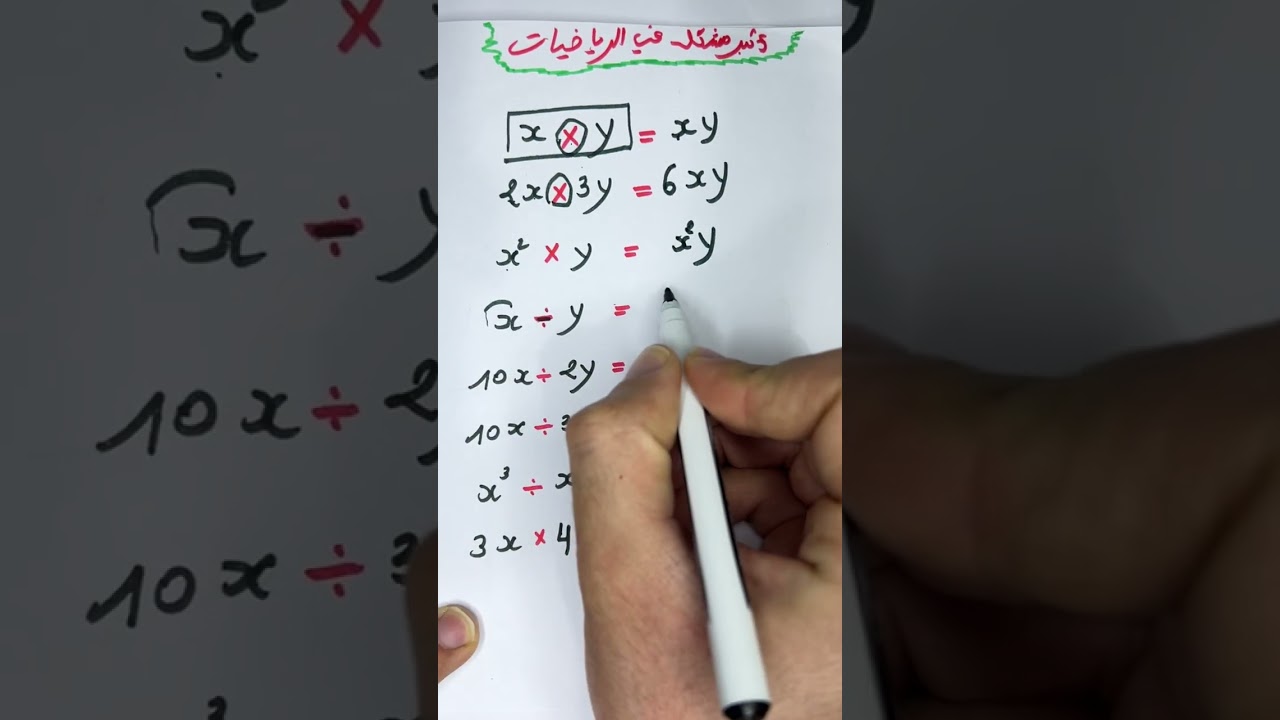 أكبر مشكلة في الرياضيات
x × y = xy
2x × 3y = 6xy
x² × y = x²y
x ÷ y =
10x ÷ 2y =
10x ÷ 3
x³ ÷ x
3x × 4